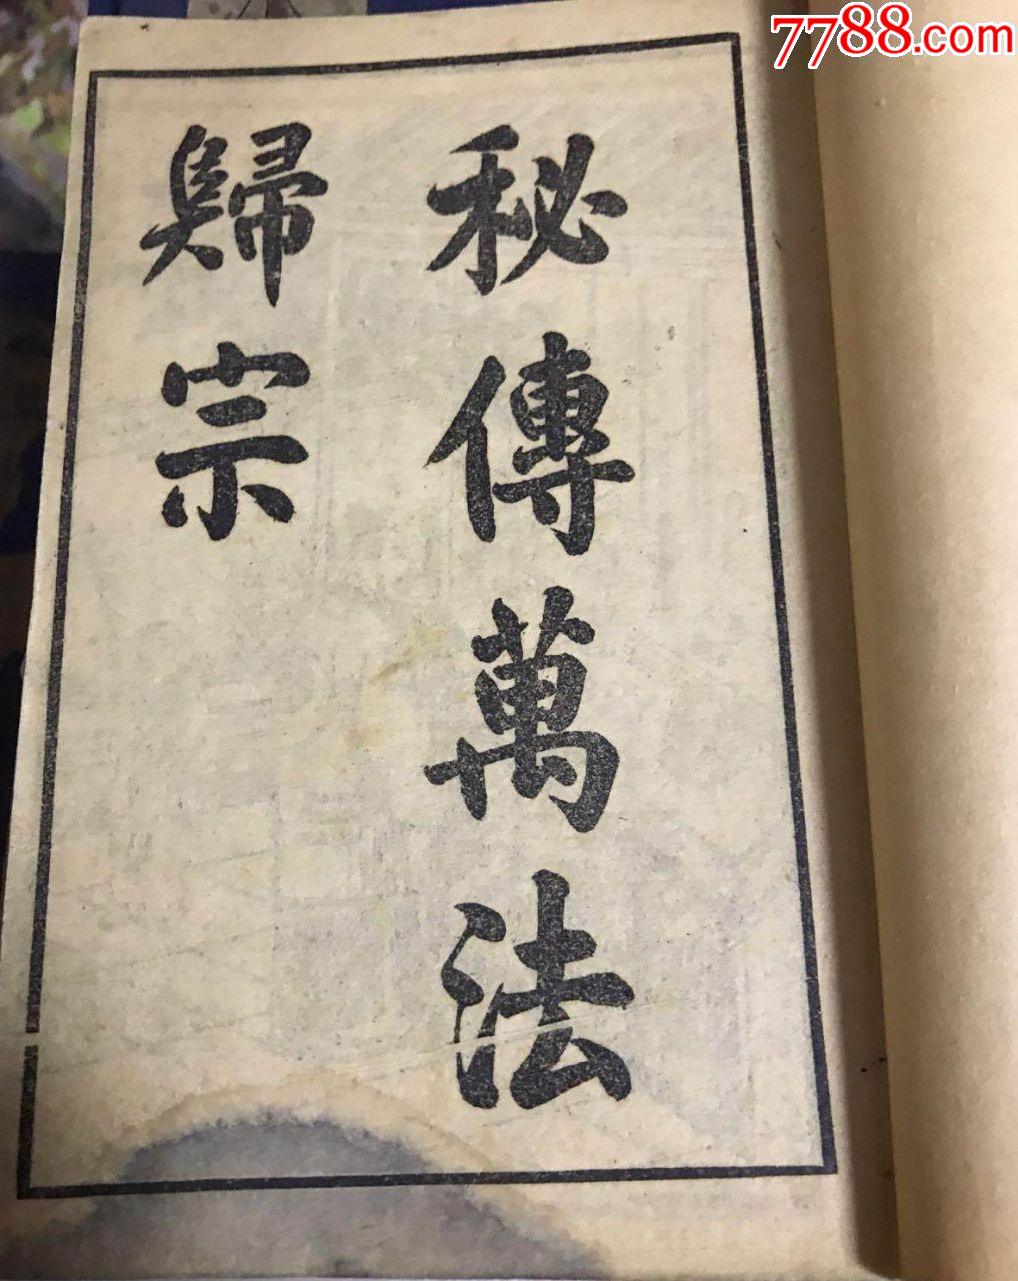 7788.com
秘傳萬法
歸宗